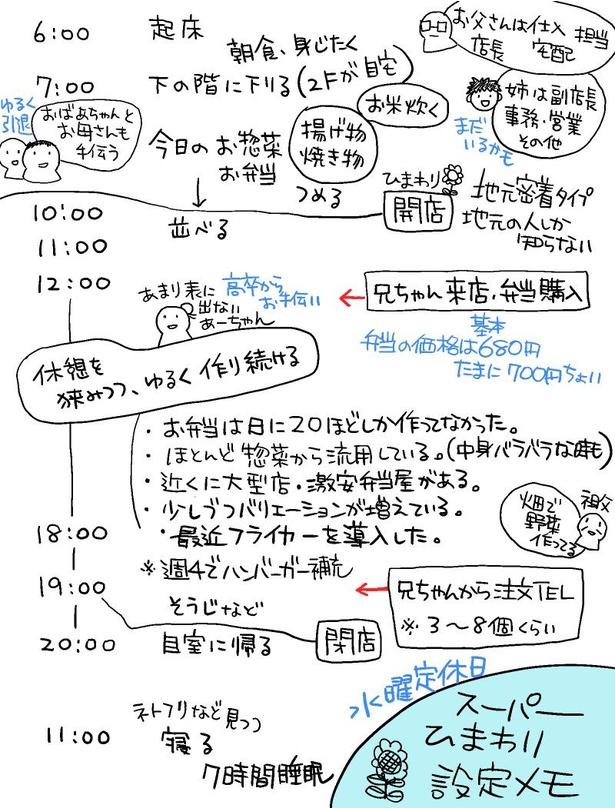 6:00 起床
朝食、身じたく
お父さんは仕入 担当
店長 宅配
7:00 下の階に下りる(2Fが自宅)
姉は副店長
事務・営業
その他
まだ
いるかも
ゆるく
引退
おばあちゃんと
お母さんも
手伝う
今日のお惣菜
お弁当
揚げ物
焼き物
お米炊く
つめる
ひまわり
開店
地元密着タイプ
地元の人しか
知らない
10:00
並べる
11:00
12:00
兄ちゃん来店・弁当購入
基本
弁当の価格は680円
たまに700円ちょい
あまり表に
出ない
あーちゃん
高卒から
お手伝い
休憩を
狭みつつ、ゆるく作り続ける
・お弁当は日に20ほどしか作ってなかった。
・ほとんど惣菜から流用している。(中身バラバラな時も)
・近くに大型店・激安弁当屋がある。
・少しづつバリエーションが増えている。
・最近フライヤーを導入した。
祖父
畑で
野菜
作ってる
18:00
※週4でハンバーガー補充
19:00
そうじなど
兄ちゃんから注文TEL
※3〜8個くらい
20:00 自室に帰る
閉店
水曜定休日
ネトフリなど見つつ
11:00 寝る
7時間睡眠
スーパー
ひまわり
設定メモ